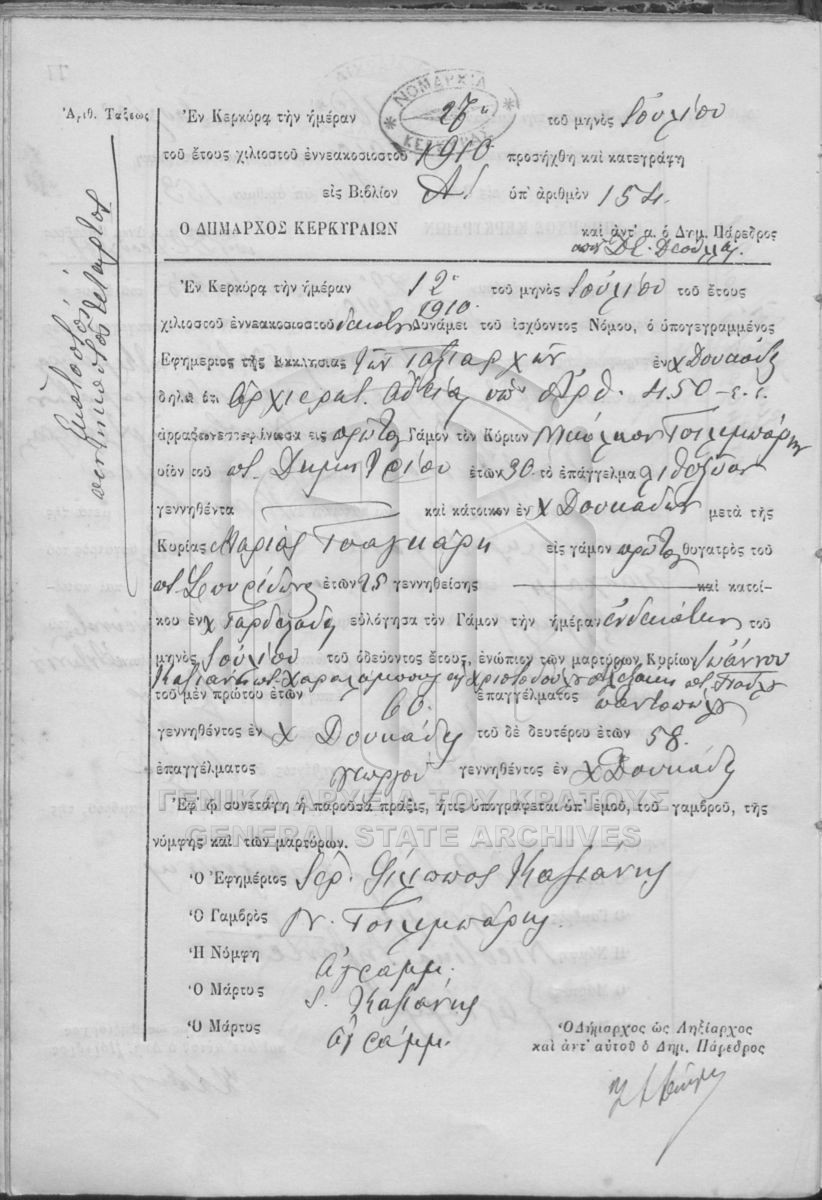 ΝΟΜΑΡΧΙΑ
ΚΕΡΚΥΡΑΣ
Ἀριθ. Τάξεως
Ἑκατοστός
πεντηκοστὸς τέταρτος
Ἐν Κερκύρᾳ τὴν ἡμέραν 27ῃ τοῦ μηνὸς Ἰουλίου
τοῦ ἔτους χιλιοστοῦ ἐννεακοσιοστοῦ 1910 προσήχθη καὶ κατεγράφη
εἰς Βιβλίον Α΄. ὑπ' ἀριθμὸν 154.
Ο ΔΗΜΑΡΧΟΣ ΚΕΡΚΥΡΑΙΩΝ καὶ ἀντ' α. ὁ Δημ. Πάρεδρος
Ἐν Κερκύρᾳ τὴν ἡμέραν 12ῃ τοῦ μηνὸς Ἰουλίου τοῦ ἔτους
1910.
χιλιοστοῦ ἐννεακοσιοστοῦ δεκάτου Δυνάμει τοῦ ἰσχύοντος Νόμου, ὁ ὑπογεγραμμένος
Ἐφημέριος τῆς Ἐκκλησίας τῶν Ταξιαρχῶν ἐν χ Δουκάδες
δηλῶ ὅτι Ἀρχιερατ. ἀδείᾳ ὑπ' Ἀρθ. 450 - ἐ. ἔ.
ἀρραβωνεστεφάνωσα εἰς πρῶτον Γάμον τὸν Κύριον Τσιλιμπάρην
υἱὸν τοῦ π. Δημητρίου ἐτῶν 30 τὸ ἐπάγγελμα λιθοξόον
γεννηθέντα καὶ κάτοικον ἐν χ Δουκάδων μετὰ τῆς
Κυρίας Μαρίας Τσαγκάρη εἰς γάμον πρῶτον θυγατρὸς τοῦ
π. Σπυρίδωνος ἐτῶν 25 γεννηθείσης καὶ κατοί-
κου ἐν χ Γαρδελάδες εὐλόγησα τὸν Γάμον τὴν ἡμέραν ἑνδεκάτην τοῦ
μηνὸς Ἰουλίου τοῦ ὁδεύοντος ἔτους, ἐνώπιον τῶν μαρτύρων, Κυρίων Ἰωάννου
Κασιάνη π. Χαραλάμπους καὶ Χριστοδούλου π. Παύλου
τοῦ μὲν πρώτου ἐτῶν 60. ἐπαγγέλματος παντοπώλου
γεννηθέντος ἐν χ Δουκάδες τοῦ δὲ δευτέρου ἐτῶν 58.
ἐπαγγέλματος γεωργοῦ γεννηθέντος ἐν χ Δουκάδες
ΓΕΝΙΚΑ ΑΡΧΕΙΑ ΤΟΥ ΚΡΑΤΟΥΣ
Ἐφ' ᾧ συνετάγη ἡ παροῦσα πρᾶξις, ἥτις ὑπογράφεται ὑπ' ἐμοῦ, τοῦ γαμβροῦ, τῆς
GENERAL STATE ARCHIVES
νύμφης καὶ τῶν μαρτύρων.
Ὁ Ἐφημέριος Ἱερ. Φίλιππος Κασιάνης
Ὁ Γαμβρὸς Ν. Τσιλιμπάρης
Ἡ Νύμφη ἀγράμμ.
Ὁ Μάρτυς Ι. Κασιάνης
Ὁ Μάρτυς ἀγράμμ.
Ὁ Δήμαρχος ὡς Ληξίαρχος
καὶ ἀντ' αὐτοῦ ὁ Δημ. Πάρεδρος